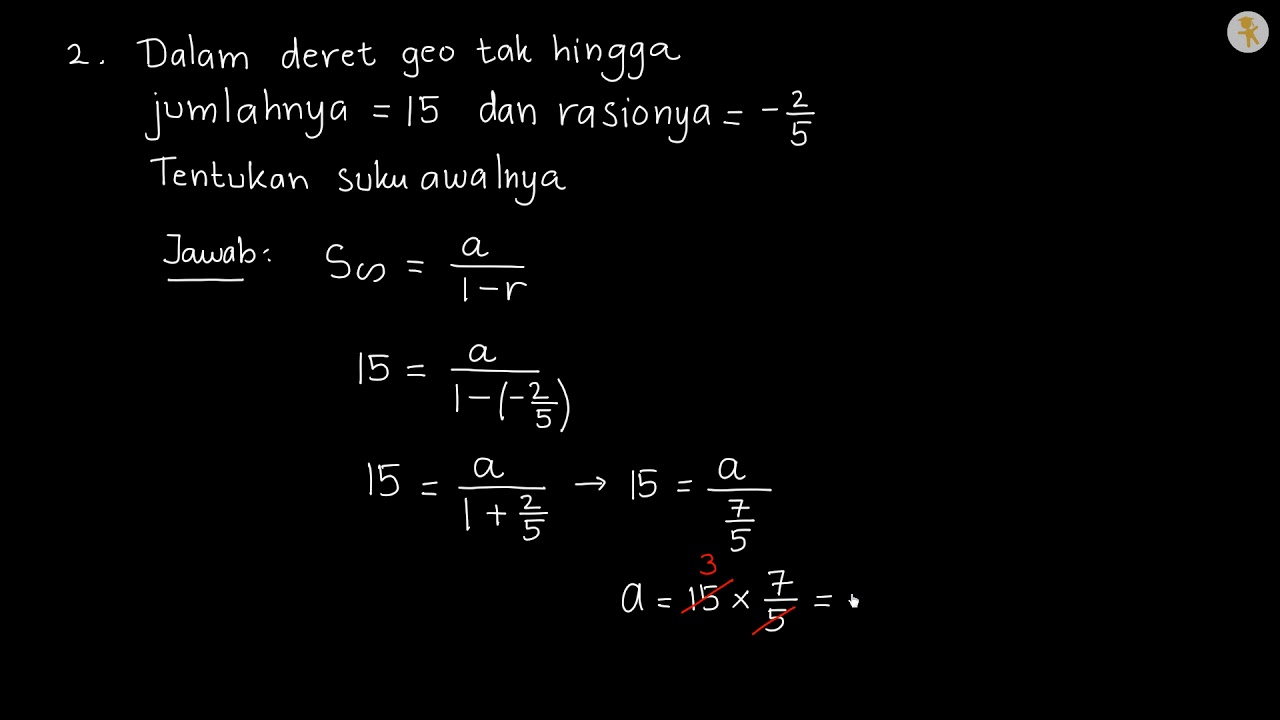 2. Dalam deret geo tak hingga
jumlahnya = 15 dan rasionya = -2/5
Tentukan suku awalnya
Jawab: S∞ = a/(1-r)
15 = a/(1-(-2/5))
15 = a/(1+2/5) → 15 = a/(7/5)
3
a = 15 × 7/5 =